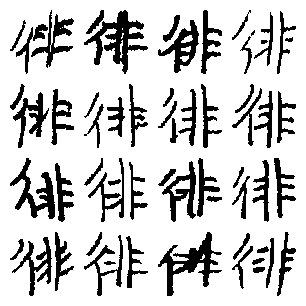 徘徘徘徘
徘徘徘徘
徘徘徘徘
徘徘徘徘